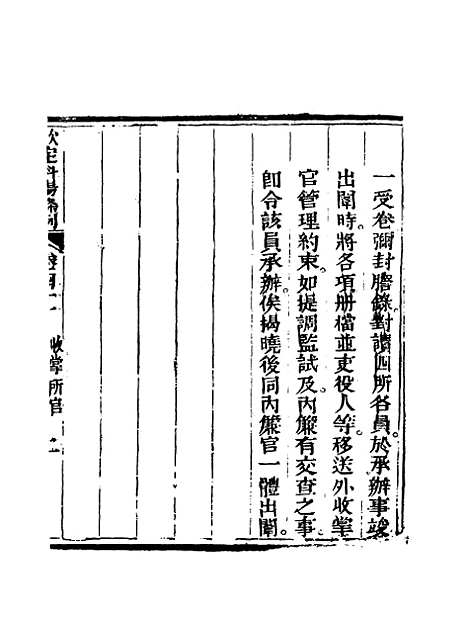 一受卷彌封謄錄對讀四所各員於承辦事竣
出闈時將各項册檔並吏役人等移送外收掌
官管理約束如提調監試及內簾有交查之事
卽令該員承辦俟揭曉後同內簾官一體出闈
欽定科場條例
收掌所官